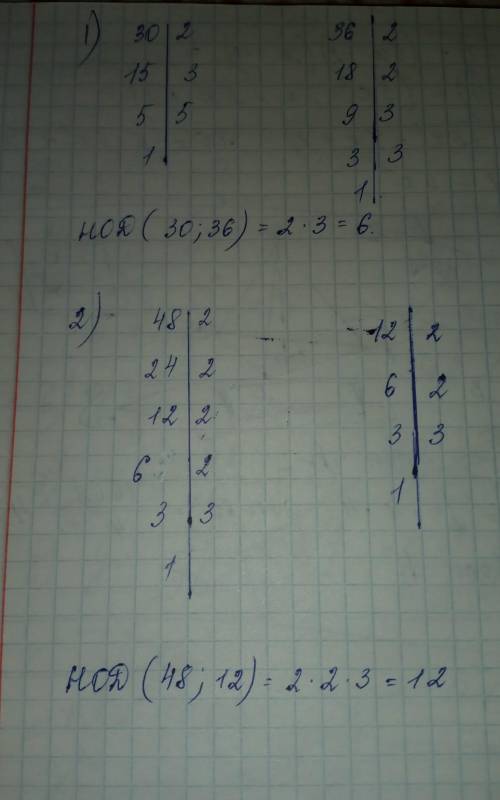 1) 30 | 2 36 | 2
15 | 3 18 | 2
5 | 5 9 | 3
1 | 3 | 3
1
НОД ( 30 ; 36 ) = 2 · 3 = 6.
2) 48 | 2 12 | 2
24 | 2 6 | 2
12 | 2 3 | 3
6 | 2 1
3 | 3
1
НОД ( 48 ; 12 ) = 2 · 2 · 3 = 12